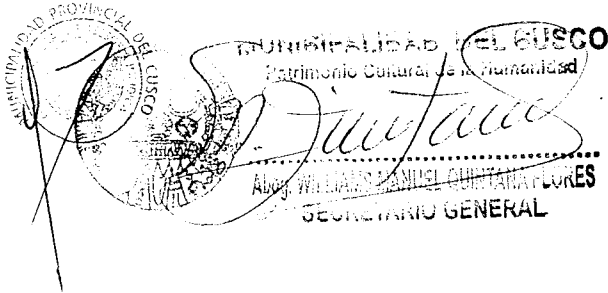 MUNICIPALIDAD PROVINCIAL DEL CUSCO
MUNICIPALIDAD DEL CUSCO
Patrimonio Cultural de la Humanidad
Quintana
Abog. WILLIAMS MANUEL QUINTANA FLORES
SECRETARIO GENERAL